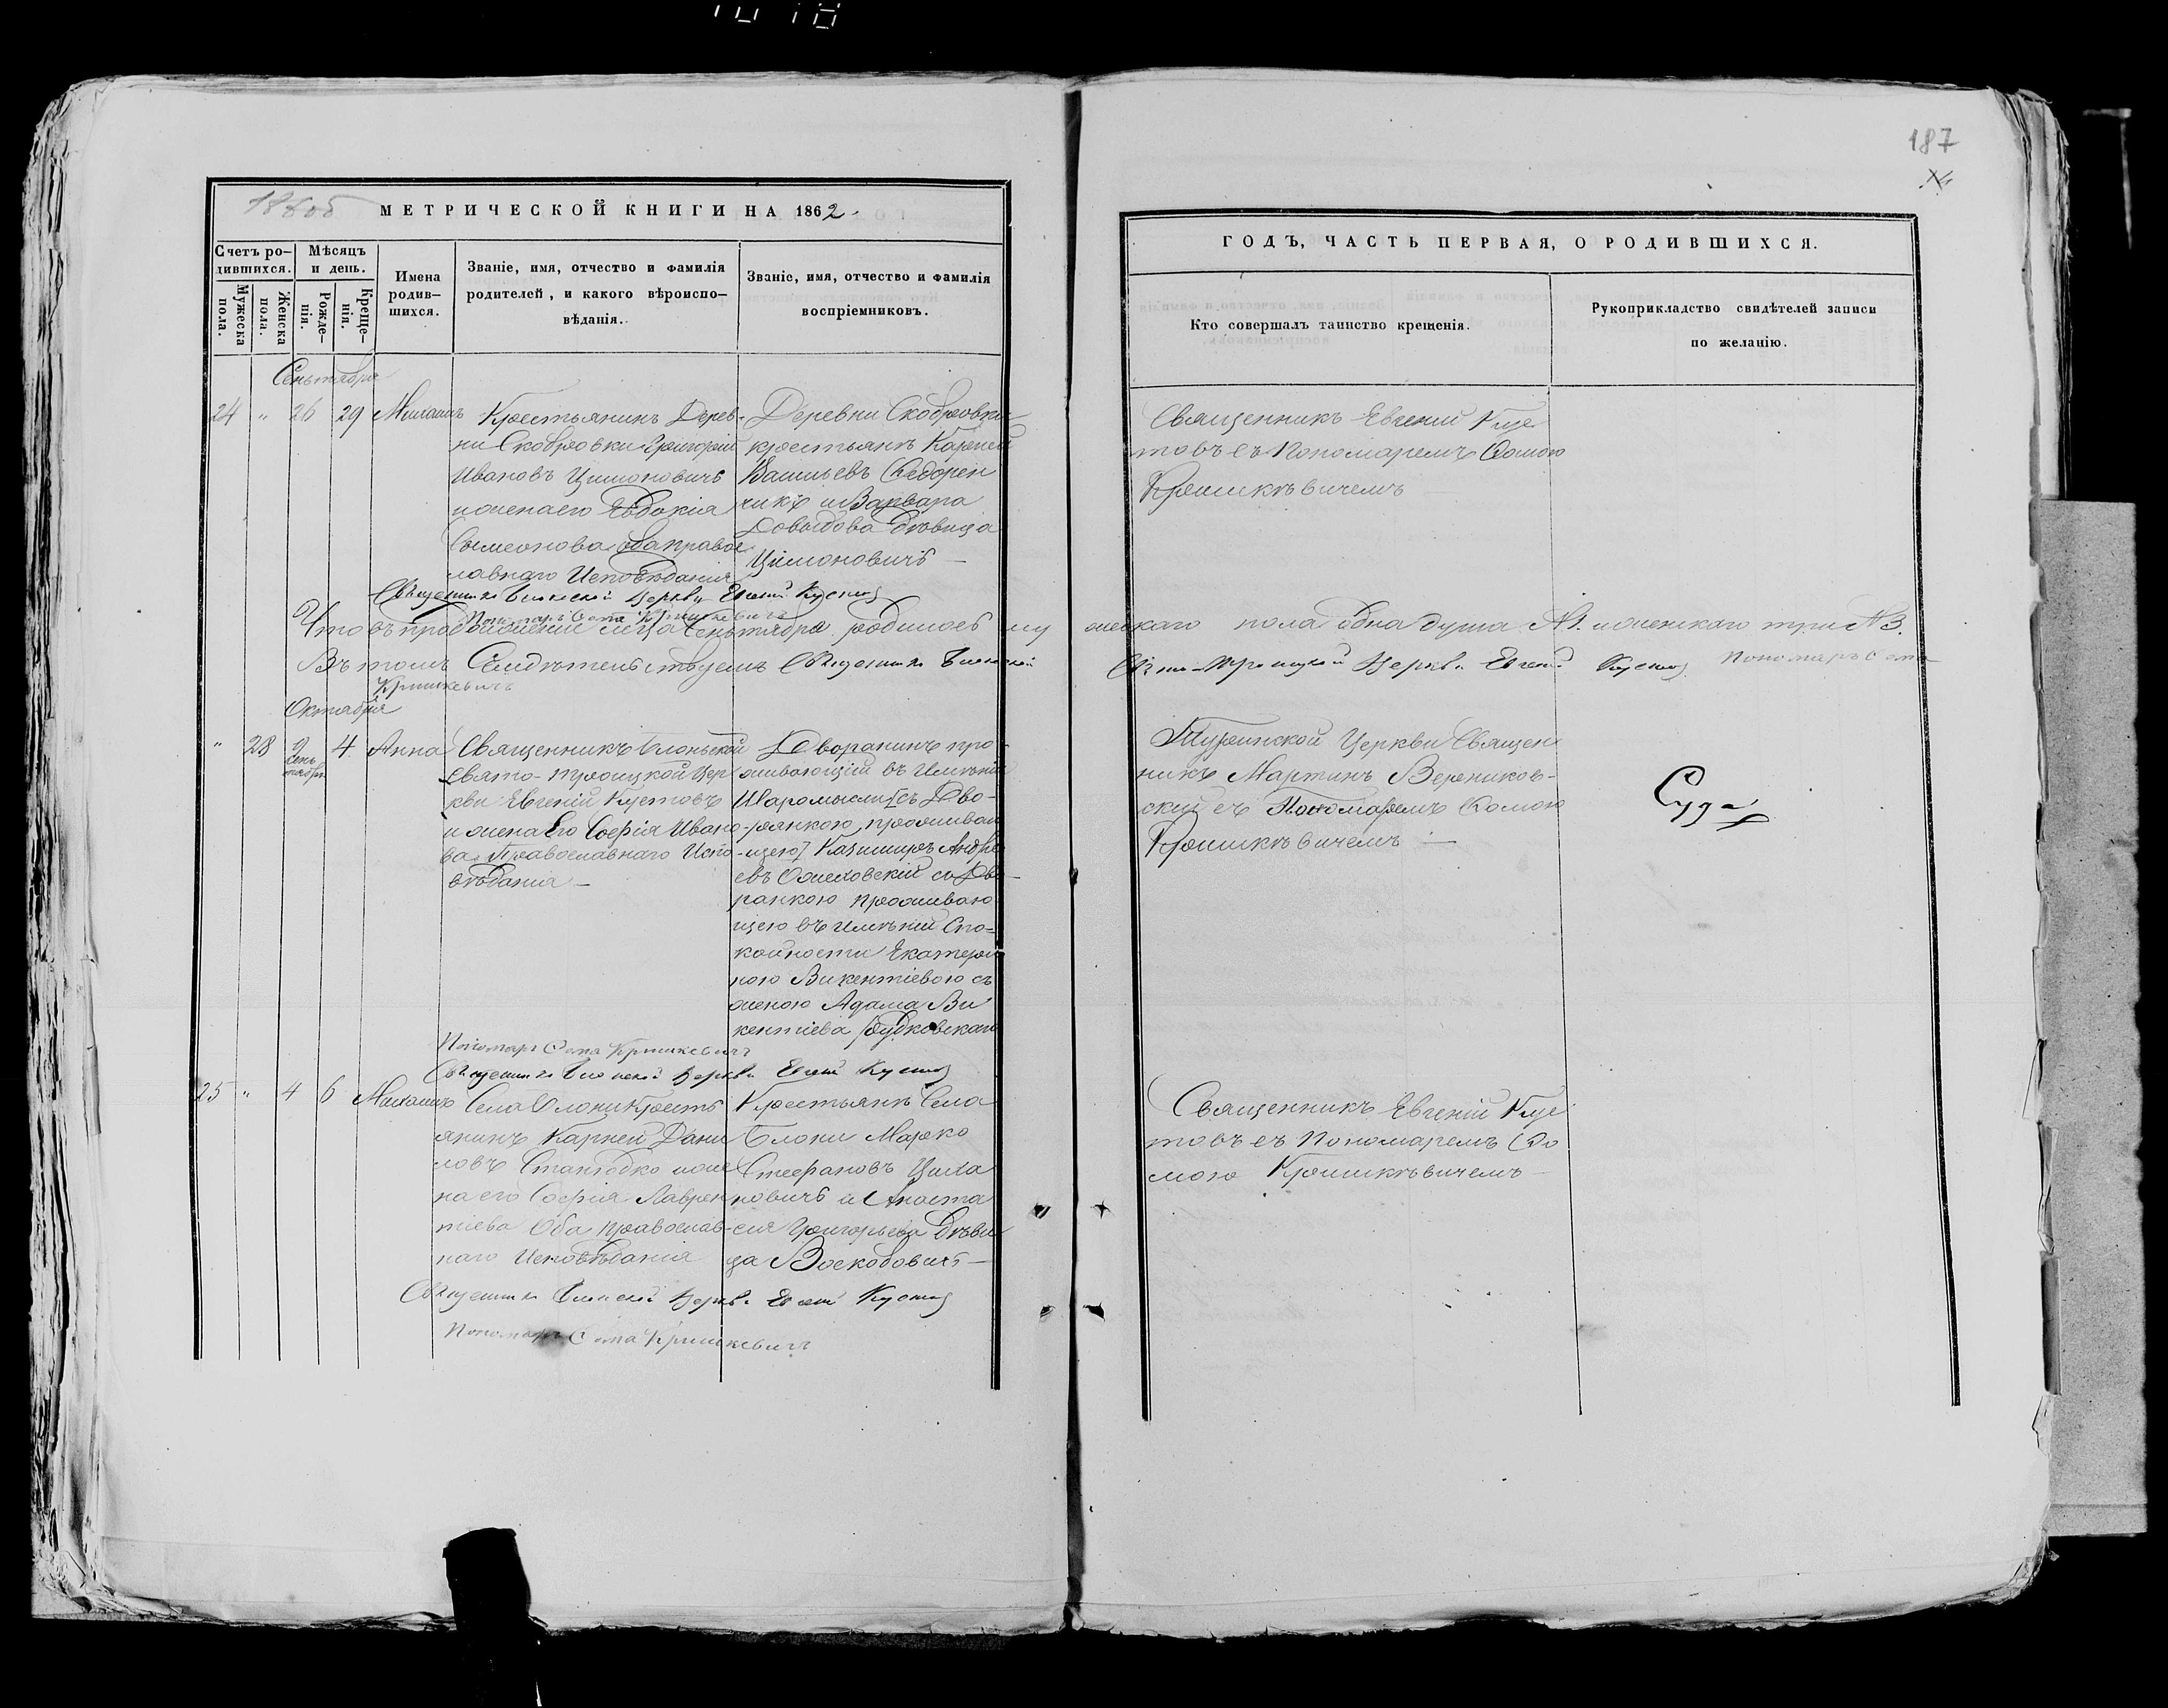 187
МЕТРИЧЕСКОЙ КНИГИ НА 1862.
Счетъ ро-
дившихся.
Мужеска
пола.
Женска
пола.
Мѣсяцъ
и день.
Рожде-
нія.
Креще-
нія.
Имена
родив-
шихся.
Званіе, имя, отчество и фамилія
родителей, и какого вѣроиспо-
вѣданія.
Званіе, имя, отчество и фамилія
воспріемниковъ.
ГОДЪ, ЧАСТЬ ПЕРВАЯ, О РОДИВШИХСЯ.
Кто совершалъ таинство крещенія.
Рукоприкладство свидѣтелей записи
по желанію.
Сентября
24 " 26 29 Михаилъ
Крестьянинъ Дерев-
ни Скобровки Григорій
Ивановъ Цимоновичъ
и жена его Евдокія
Сымеонова оба православ
лавнаго Исповѣданія
Деревни Скобровки
крестьянъ Карней
Васильевъ Сидорен
чикъ и Варвара
Довыдова дѣвица
Цимоновичъ —
Священникъ Евгеній Кус
товъ съ Пономаремъ Ѳомою
Кришкѣвичемъ —
Священникъ Блонской Церкви Евгеній Кустовъ
Пономарь Ѳома Кришкевичъ
Что въ продолженіи м-ца Сентября родилось му
жескаго пола одна душа №1. женскаго три №3.
Въ томъ Свидѣтельствуемъ Священникъ Блонской
Свято-Троицкой Церкви Евгеній Кустовъ Пономарь Ѳома
Кришкевичъ
Октября
" 28 9 Сентября 4 Анна
Священникъ Блонской
Свято-Троицкой Цер
кви Евгеній Кустовъ
и жена Его Софія Ивано
ва Православнаго Испо
вѣданія —
Дворанинъ про
живающій въ Имѣніи
Шаромысли [съ Дво-
рянкою, проживаю
щею] Казимиръ Андре
евъ Ожеховскій съ Дво
ранкою проживаю
щею въ имѣніи Спо-
койности Екатери
ною Викентіевою съ
женою Адама Ви
кентіева Рудковскаго
Туринской Церкви Священ
никъ Мартинъ Верников-
скій съ Пономаремъ Ѳомою
Кришкѣвичемъ —
Пономарь Ѳома Кришкевичъ
Священникъ Блонской Церкви Евгеній Кустовъ
25 " 4 6 Михаилъ
Села Блони Кресть
янинъ Карней Дани
ловъ же
на его Софія Лаврен
тіева Оба Православ-
наго Исповѣданія
Крестьянъ Села
Блони Марко
Стефановъ Цима
новичъ и Анаста
сія Григорьева дѣви
ца Воскобовичъ —
Священникъ Евгеній Кус
товъ съ Пономаремъ Ѳо
мою Кришкѣвичемъ —
Священникъ Блонской Церкви Евгеній Кустовъ
Пономарь Ѳома Кришкевичъ